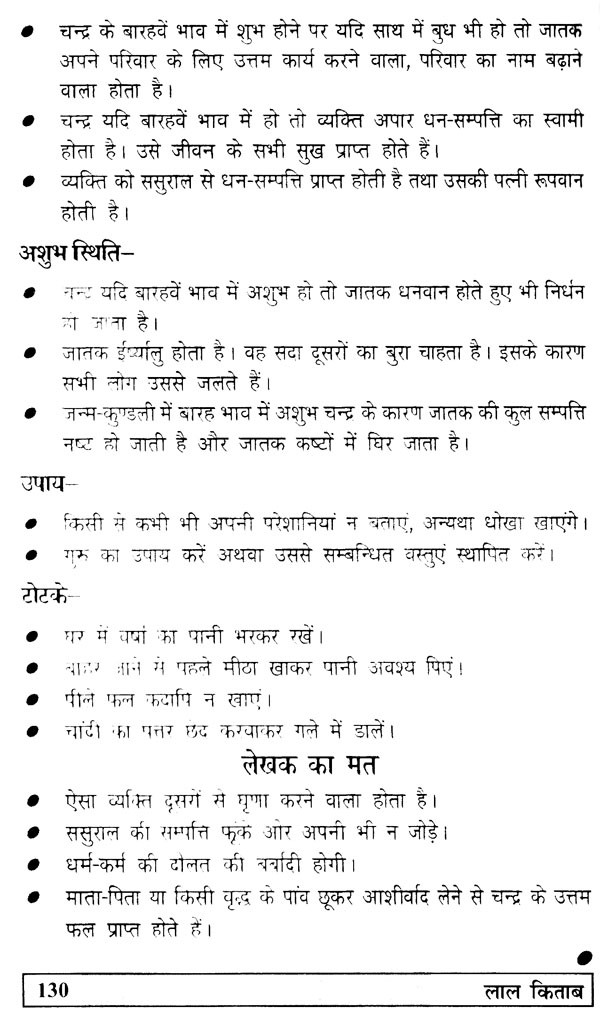 ● चन्द्र के बारहवें भाव में शुभ होने पर यदि साथ में बुध भी हो तो जातक
अपने परिवार के लिए उत्तम कार्य करने वाला, परिवार का नाम बढ़ाने
वाला होता है।
● चन्द्र यदि बारहवें भाव में हो तो व्यक्ति अपार धन-सम्पत्ति का स्वामी
होता है। उसे जीवन के सभी सुख प्राप्त होते हैं।
● व्यक्ति को ससुराल से धन-सम्पत्ति प्राप्त होती है तथा उसकी पत्नी रूपवान
होती है।
अशुभ स्थिति–
● चन्द्र यदि बारहवें भाव में अशुभ हो तो जातक धनवान होते हुए भी निर्धन
हो जाता है।
● जातक ईर्ष्यालु होता है। वह सदा दूसरों का बुरा चाहता है। इसके कारण
सभी लोग उससे जलते हैं।
● जन्म-कुण्डली में बारह भाव में अशुभ चन्द्र के कारण जातक की कुल सम्पत्ति
नष्ट हो जाती है और जातक कष्टों में घिर जाता है।
उपाय–
● किसी से कभी भी अपनी परेशानियां न बताएं, अन्यथा धोखा खाएंगे।
● गुरु का उपाय करें अथवा उससे सम्बन्धित वस्तुएं स्थापित करें।
टोटके–
● घर में वर्षा का पानी भरकर रखें।
● बाहर जाने से पहले मीठा खाकर पानी अवश्य पिएं।
● पीले फल कदापि न खाएं।
● चांदी का पत्तर छेद करवाकर गले में डालें।
लेखक का मत
● ऐसा व्यक्ति दूसरों से घृणा करने वाला होता है।
● ससुराल की सम्पत्ति फूंके और अपनी भी न जोड़े।
● धर्म-कर्म की दौलत की बर्बादी होगी।
● माता-पिता या किसी वृद्ध के पांव छूकर आशीर्वाद लेने से चन्द्र के उत्तम
फल प्राप्त होते हैं।
●
130 लाल किताब